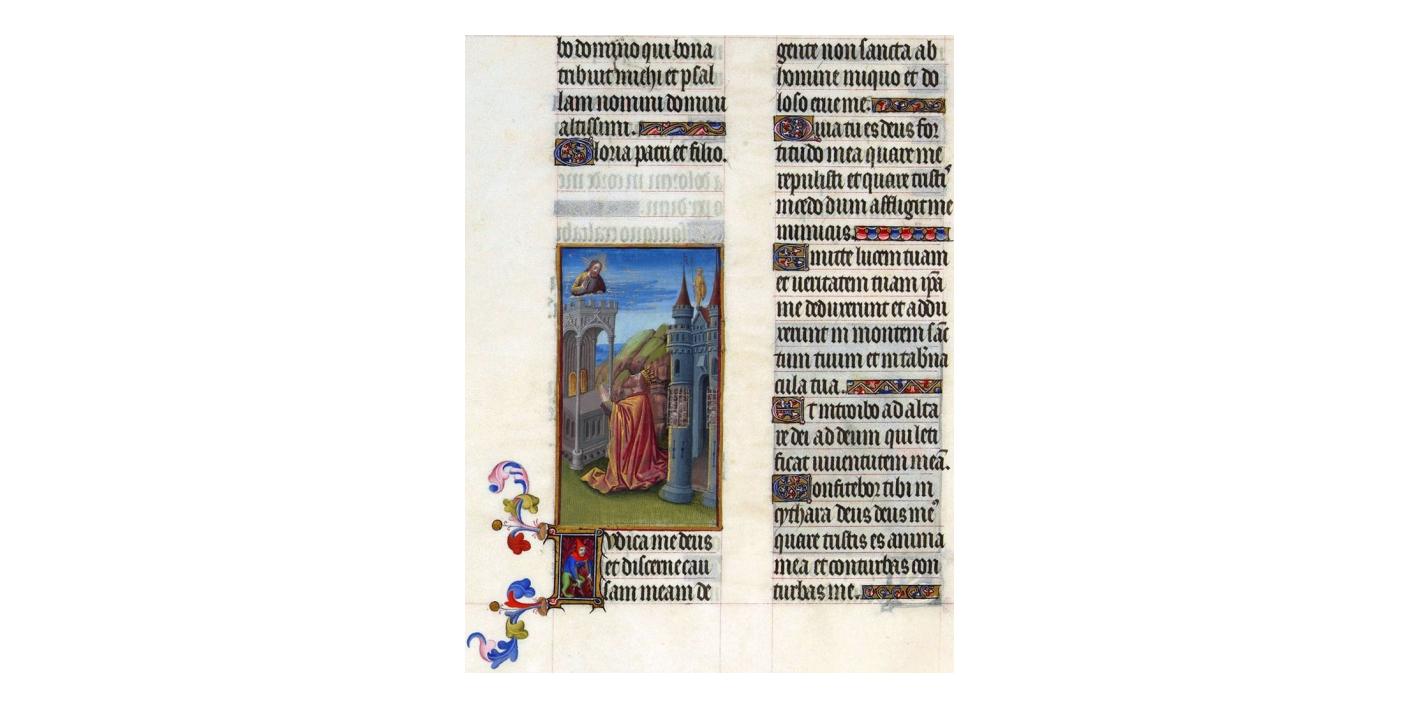 bo domino qui bona
tribuit michi et psal
lam nomini domini
altissimi.
Gloria patri et filio.
Iudica me deus
et discerne cau
sam meam de
gente non sancta ab
homine iniquo et do
loso erue me.
Quia tu es deus for
titudo mea quare me
repulisti et quare tristi
incedo dum affligit me
inimicus.
Emitte lucem tuam
et ueritatem tuam ip̄a
me deduxerunt et addu
xerunt in montem sāc
tum tuum et in tab̄na
cula tua.
Et introibo ad alta
re dei ad deum qui leti
ficat iuuentutem meā.
Confitebor tibi in
cythara deus deus me᾿
quare tristis es anima
mea et conturbas con
turbas me.